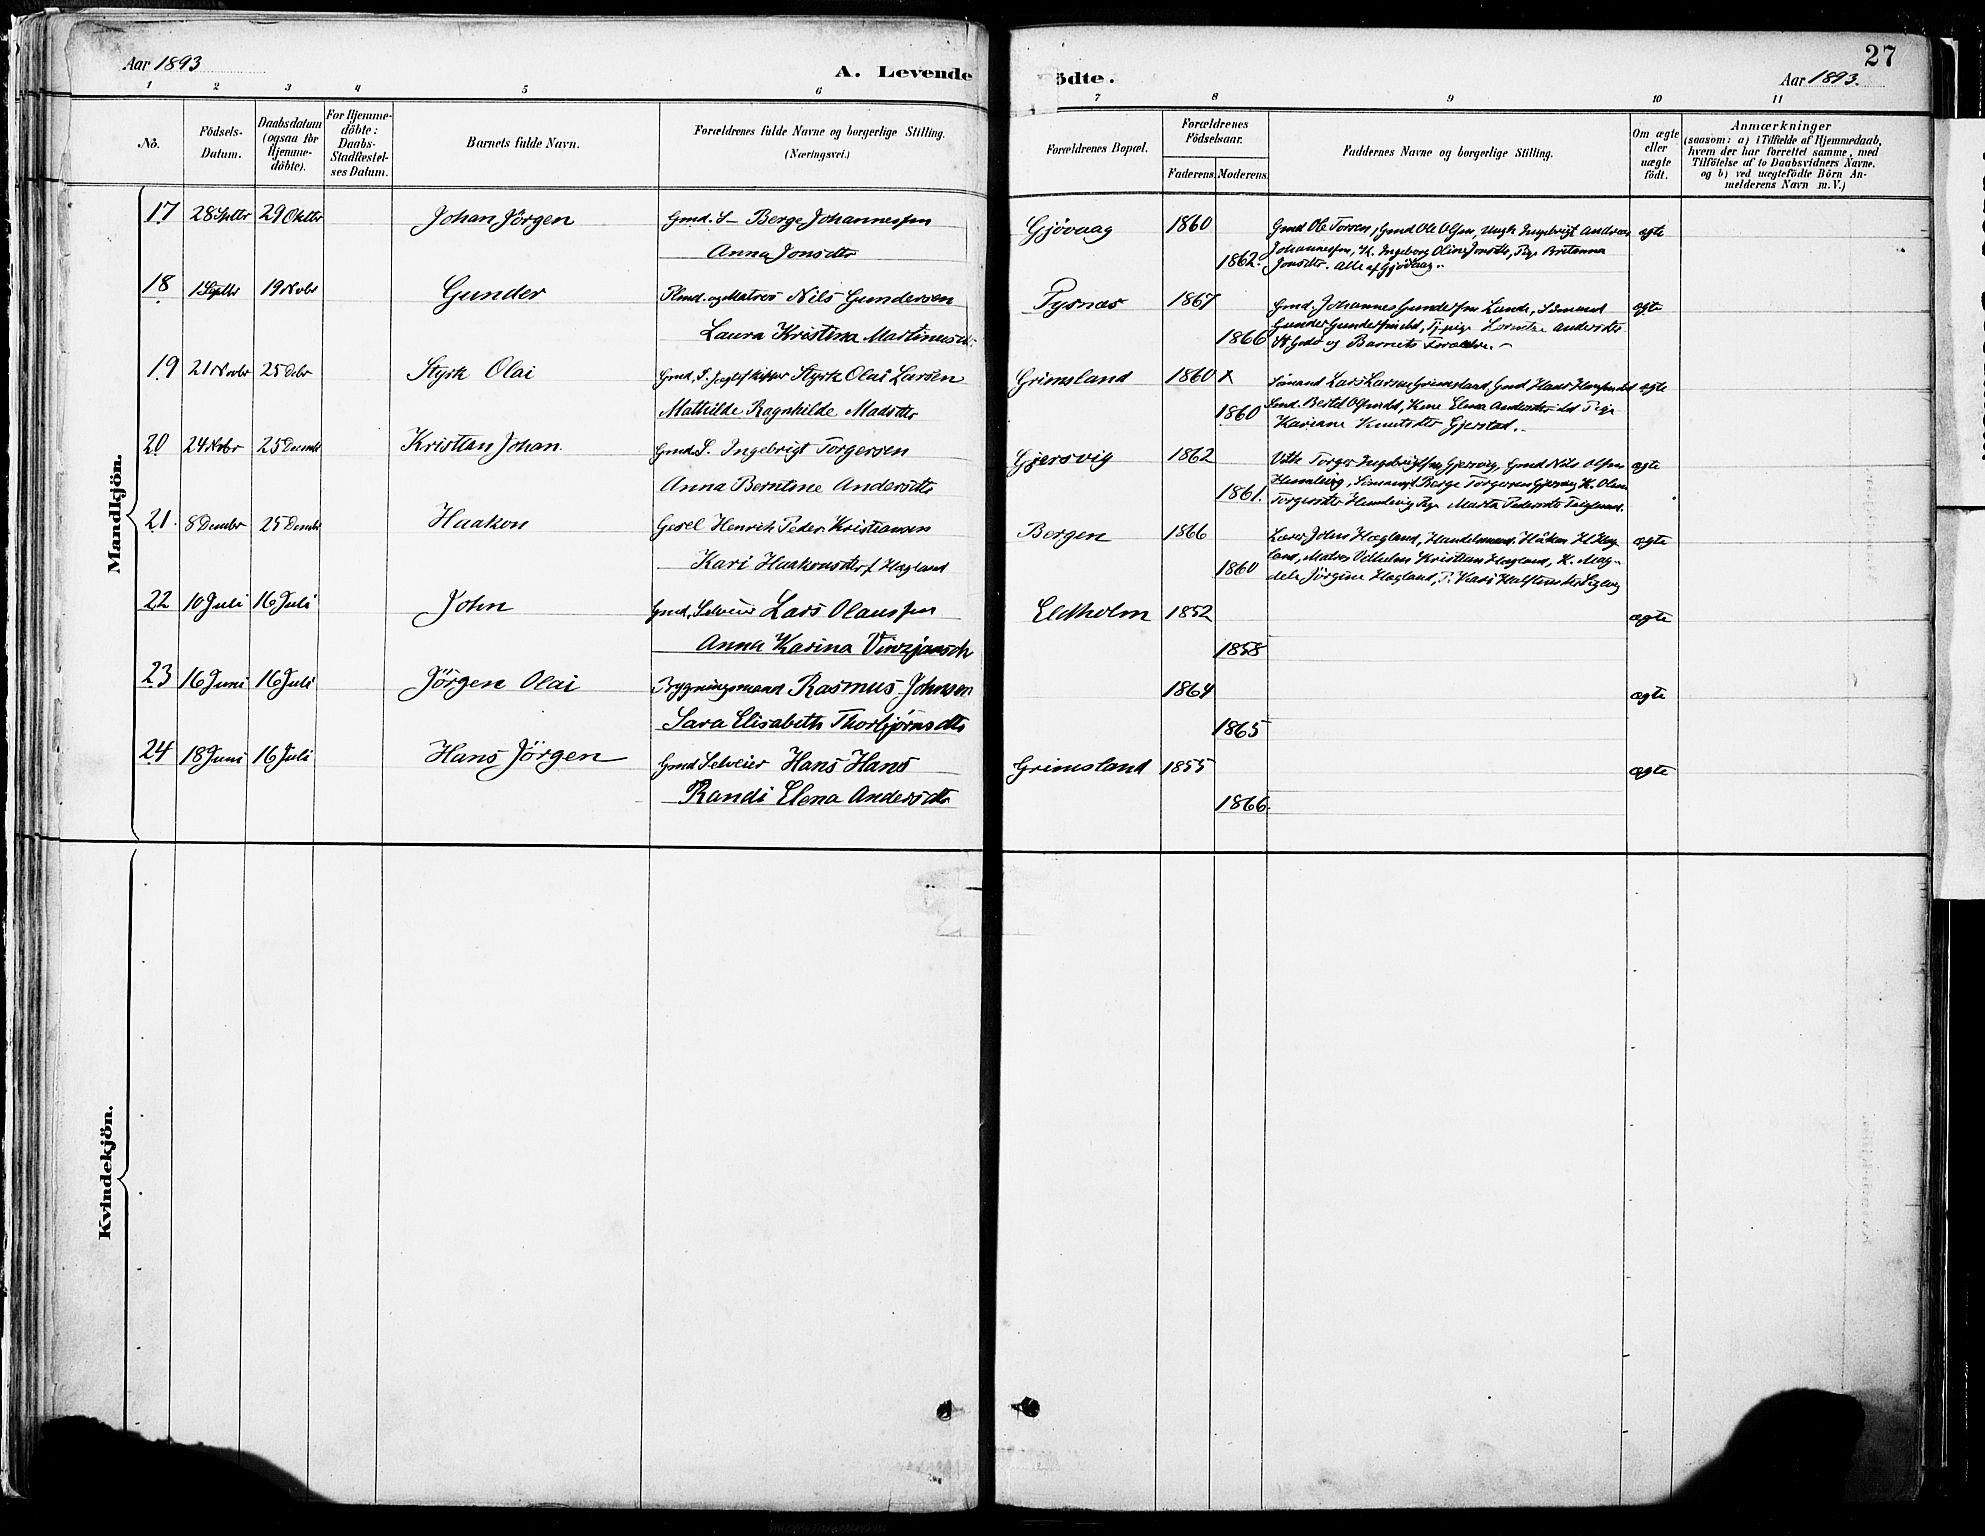 Aar 1893
A. Levende
ödte.
27
Aar 1893.
1 2 3 4 5 6 7 8 9 10 11
No.
Födsels-
Datum.
Daabsdatum
(ogsaa for
Hjemme-
döbte).
For Hjemme-
döbte:
Daabs-
Stadfestel-
ses Datum.
Barnets fulde Navn.
Forældrenes fulde Navne og borgerlige Stilling.
(Næringsvei.)
Forældrenes Bopæl.
Forældrenes
Födselsaar.
Faderens. Moderens.
Faddernes Navne og borgerlige Stilling.
Om ægte
eller
uægte
födt.
Anmærkninger
(saasom: a) i Tilfælde af Hjemmedaab,
hvem der har forrettet samme, med
Tilföielse af to Daabsvidners Navne.
og b) ved uægtefödte Börn An-
melderens Navn m. V.)
Mandkjön.
17 28 Septbr 29 Oktbr Johan Jörgen Gmd. S– Berge Johannessen Gjövaag 1860 Gmd Ole Olsen, Ungk Ingebrigt Andreas ægte
Anna Jonsdtr 1862. Johannessen, K. Ingeborg Olina Jonsdtr, Pige Britanna
Jonsdtr. Alle af Gjövaag.
18 1 Septbr 19 Novbr Gunder Plmd. og Matros Nils Gundersen Tysnæs 1867 Gmd. Johannes Gundersen Lunde, Sömand ægte
Laura Kristina Martinusdtr. 1866 Gunder Gundersen ibd, Tj. pige Andersdtr
og Barnets Forældre.
19 21 Novbr 25 Debr Styrk Olai Gmd. S. Styrk Olai Larsen Grimsland 1860 x Sömand Lars Larsen Grimsland, Gmd Hans Hansen ibd ægte
Mathilde Ragnhilde Madsdtr 1860 Gmd. Bertel Olsen ibd, Kone Elena Andersdtr ibd Pige
Kariane Knutsdtr Gjerstad.
20 24 Novbr 25 Decmbr Kristian Johan Gmd. S. Ingebrigt Torgersen Gjersvig 1862 Torger Ingebrigtsen Gjersvig, Gmd Nils Olsen ægte
Anna Berntine Andersdtr 1861. Berge Torgersen Gjersvig K. Olena
Torgersdtr Pige Marta Pedersdtr
21. 8 Decmbr 25 Decmbr Haakon Henrich Peder Kristiansen Bergen 1866 Lærer John Hagland, Handelsmand Håkon H Hag ægte
Kari Haakonsdtr f Hagland 1860 land, Matros Vilhelm Kristian Hagland, K. Mag-
dele Jörgine Hagland, P. Kari
22 10 Juli 16 Juli John Gmd. Selveier Lars Olaussen Eldholm 1852 ægte
Anna Karina 1858
23 16 Juni 16 Juli Jörgen Olai Bygningsmand Rasmus Johnsen 1864 ægte
Sara Elisabeth Thorbjörnsdtr 1865
24 18 Juni 16 Juli Hans Jörgen Gmd Selveier Hans Hans Grimsland 1855 ægte
Randi Elena Andersdtr 1866.
Kvindekjön.